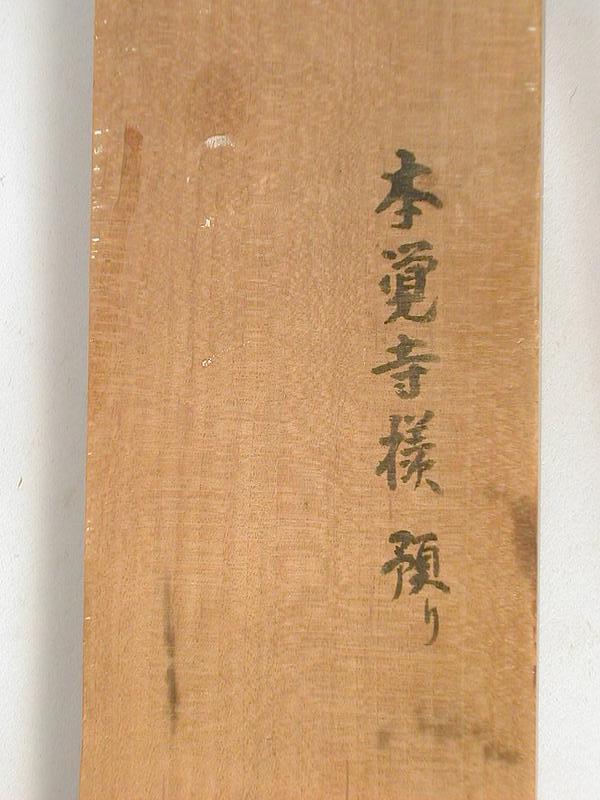 本覚寺様 預り